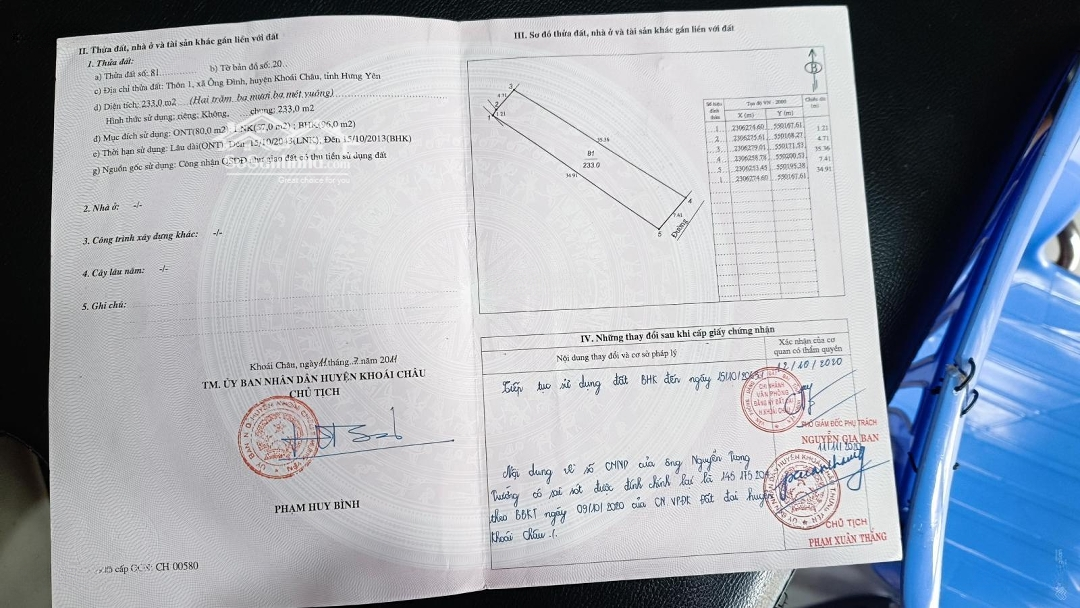 II. Thửa đất, nhà ở và tài sản khác gắn liền với đất
1. Thửa đất:
a) Thửa đất số: 81 b) Tờ bản đồ số: 20
c) Địa chỉ thửa đất: Thôn 1, xã Ông Đình, huyện Khoái Châu, tỉnh Hưng Yên
d) Diện tích: 233,0 m2 (Hai trăm ba mươi ba mét vuông)
Hình thức sử dụng: riêng: Không, chung: 233,0 m2
đ) Mục đích sử dụng: ONT(80,0 m2), LNK(57,0 m2) ; BHK(96,0 m2)
e) Thời hạn sử dụng: Lâu dài(ONT), Đến 15/10/2043(LNK), Đến 15/10/2013(BHK)
g) Nguồn gốc sử dụng: Công nhận QSDĐ như giao đất có thu tiền sử dụng đất
2. Nhà ở: -/-
3. Công trình xây dựng khác: -/-
4. Cây lâu năm: -/-
5. Ghi chú:
Khoái Châu, ngày 11 tháng 7 năm 2011
TM. ỦY BAN NHÂN DÂN HUYỆN KHOÁI CHÂU
CHỦ TỊCH
PHẠM HUY BÌNH
cấp GCN: CH 00580
III. Sơ đồ thửa đất, nhà ở và tài sản khác gắn liền với đất
B
3
4.71
2
1
1.21
35.36
81
233.0
34.91
4
7.41
5
Đường
Số hiệu đỉnh thửa Tọa độ VN - 2000 Chiều dài (m)
X (m) Y (m)
1 2306274.60 550167.61
1.21
2 2306275.61 550168.27
4.71
3 2306279.01 550171.53
35.36
4 2306258.78 550200.53
7.41
5 2306253.45 550195.38
34.91
1 2306274.60 550167.61
IV. Những thay đổi sau khi cấp giấy chứng nhận
Nội dung thay đổi và cơ sở pháp lý
Xác nhận của cơ quan có thẩm quyền
12/10/2020
Tiếp tục sử dụng đất BHK đến ngày
CHI NHÁNH
VĂN PHÒNG
ĐĂNG KÝ ĐẤT ĐAI
H.KHOÁI CHÂU
PHÓ GIÁM ĐỐC PHỤ TRÁCH
NGUYỄN GIA BAN
11/11/2020
Nội dung về số CMND của ông Nguyễn Trọng
Trưởng có sai sót được đính chính lại là 145 175 204
theo BBKT ngày 09/10/2020 của CN VPĐK Đất đai huyện
Khoái Châu./.
CHỦ TỊCH
PHẠM XUÂN THẮNG